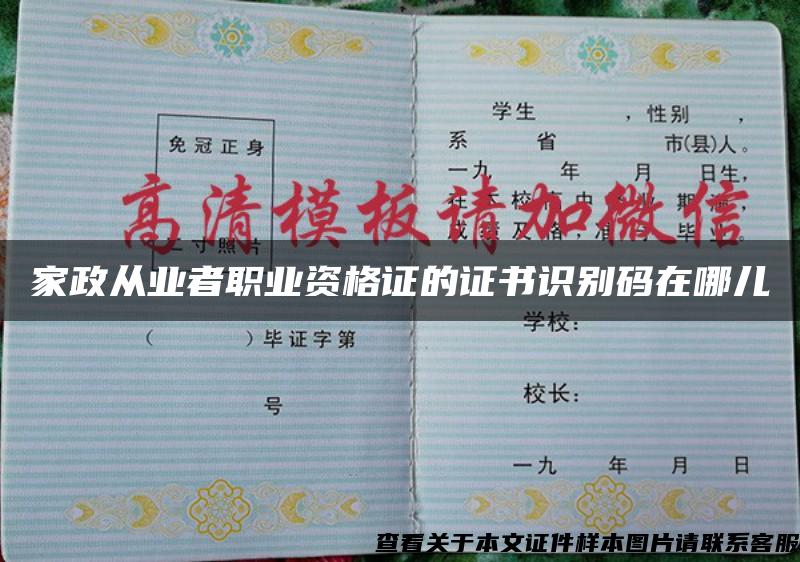 免冠正身
二寸照片
（ ）毕证字第
号
学生 ，性别 ，
系 省 市(县)人。
一九 年 月 日生，
高清模板请加微信
家政从业者职业资格证的证书识别码在哪儿
学校：
校长：
一九 年 月 日
查看关于本文证件样本图片请联系客服